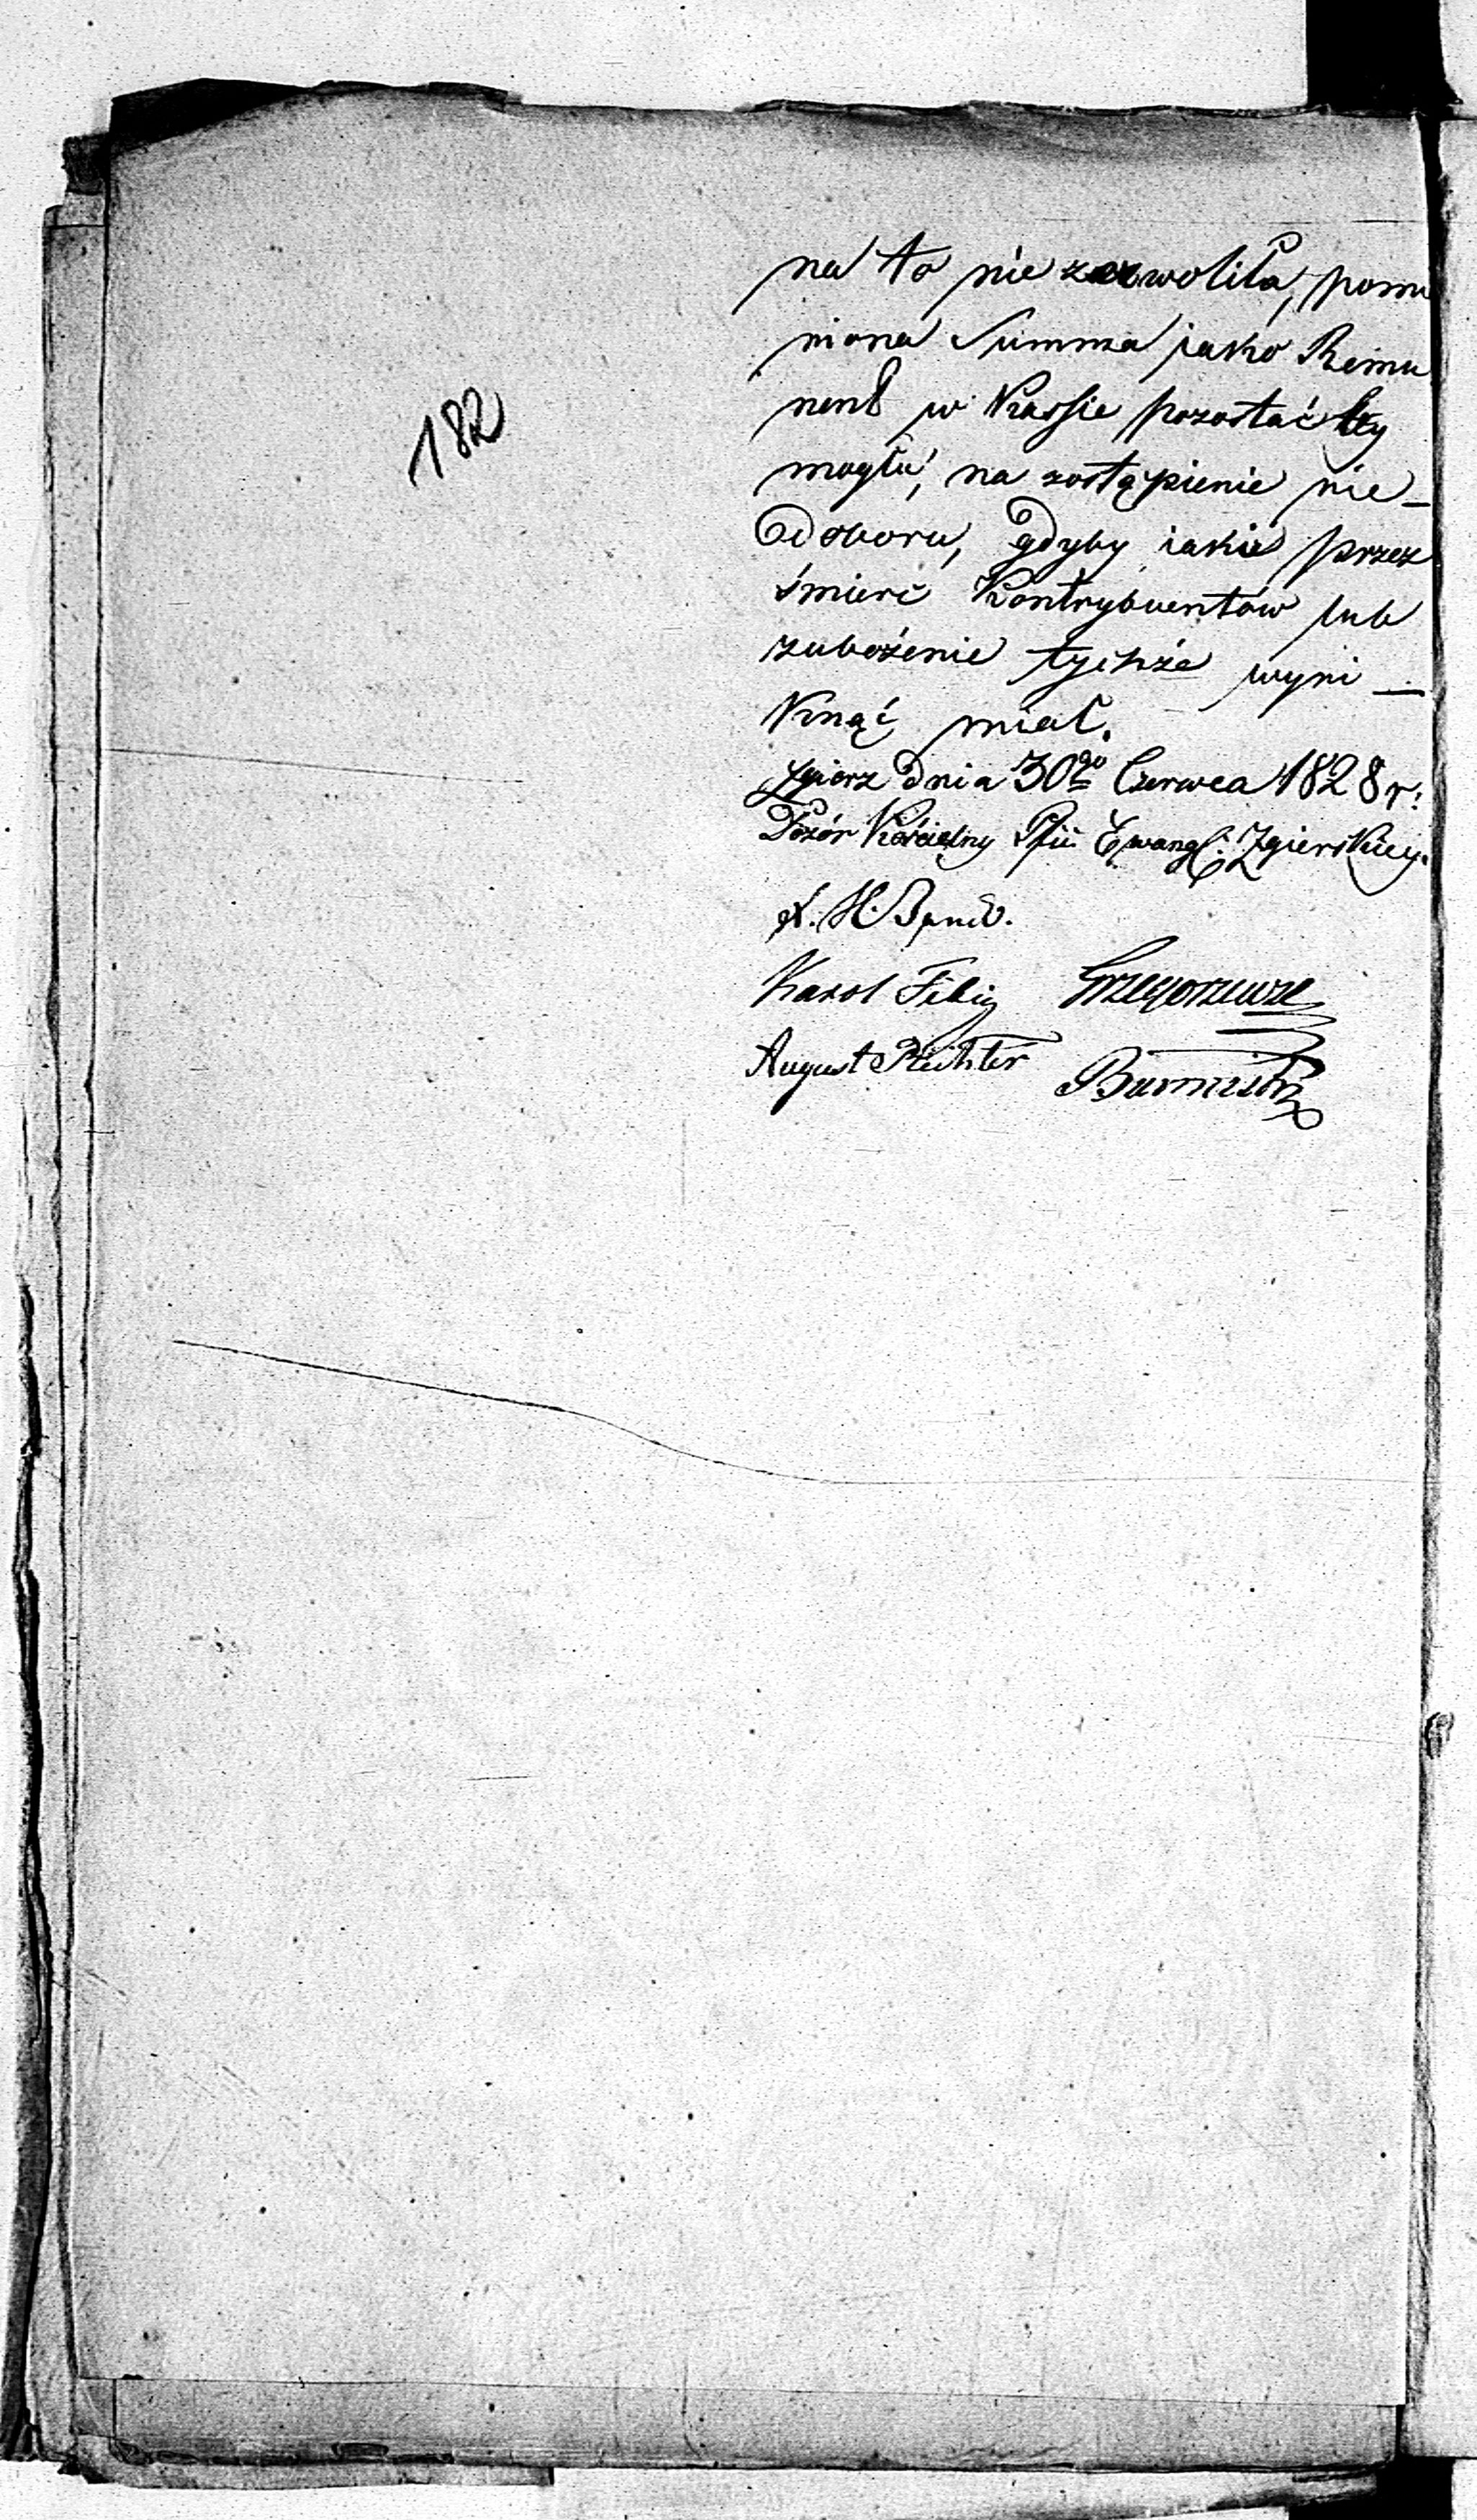 182
na to nie zezwoliła, pomie
niona Summa jako Rema
nent w Kassie pozostać by
mogła, na zastąpienie nie_
doboru, gdyby iakie przez
śmierć Kontrybuentów lub
zubożenie tychże wyni_
knąć miał.
Zgierz dnia 30go Czerwca 1828 r:
Dozór Kościelny Pfii Ewangl: Zgierskiey.
Karol
August Richter
Burmistrz